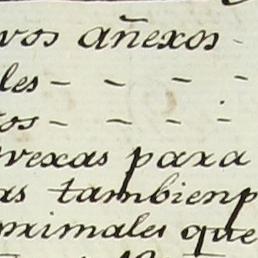 vos añexos -
les - - - -
tos - - - -
vexas para
as tambien p
nximales que